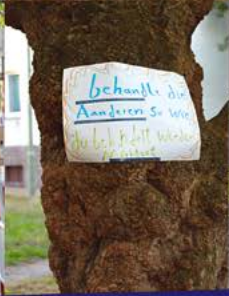 behandle die
Aanderen so wie
du behndelt werden
möchtest